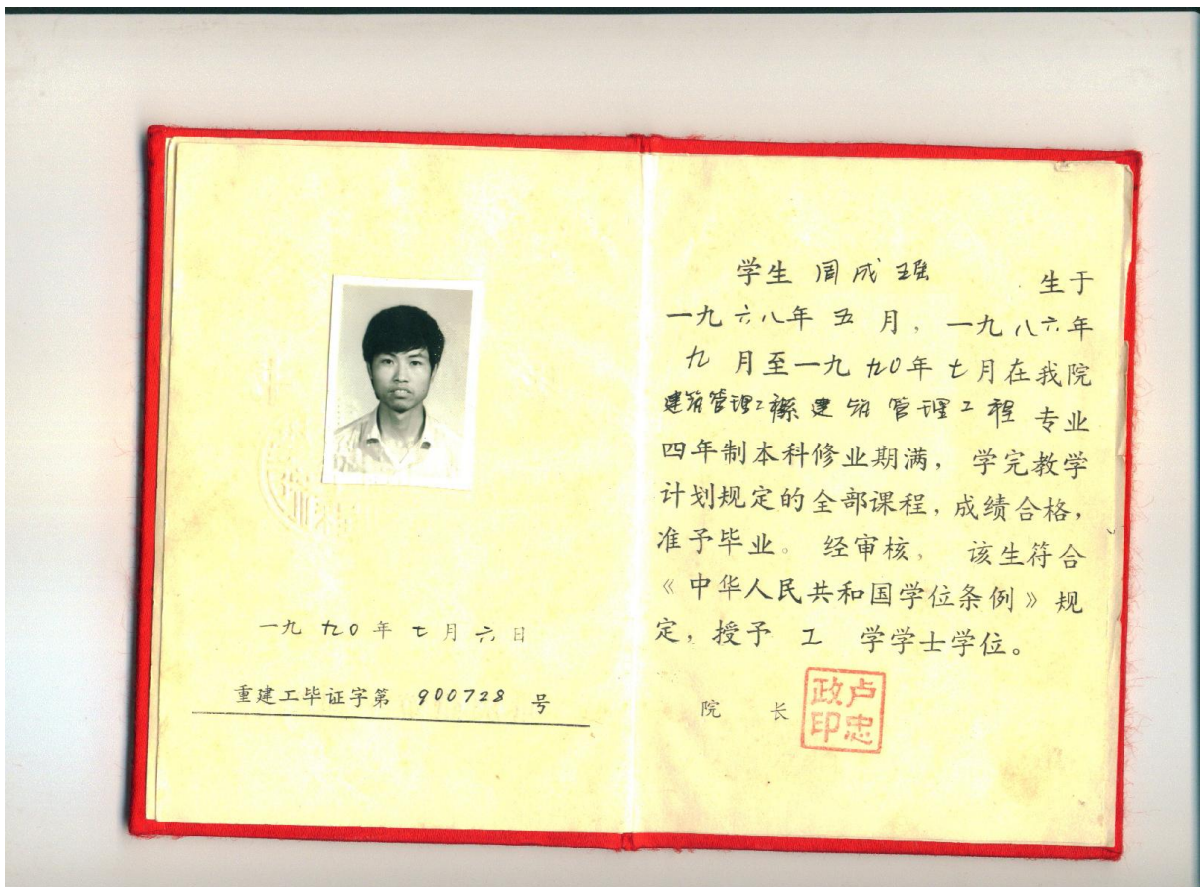 一九九0年七月六日
重建工毕证字第 900728 号
学生 周成 生于
一九六八年五月，一九八六年
九月至一九九0年七月在我院
建筑管理工程系建筑管理工程专业
四年制本科修业期满，学完教学
计划规定的全部课程，成绩合格，
准予毕业。经审核，该生符合
《中华人民共和国学位条例》规
定，授予 工 学学士学位。
院 长
卢忠
政印